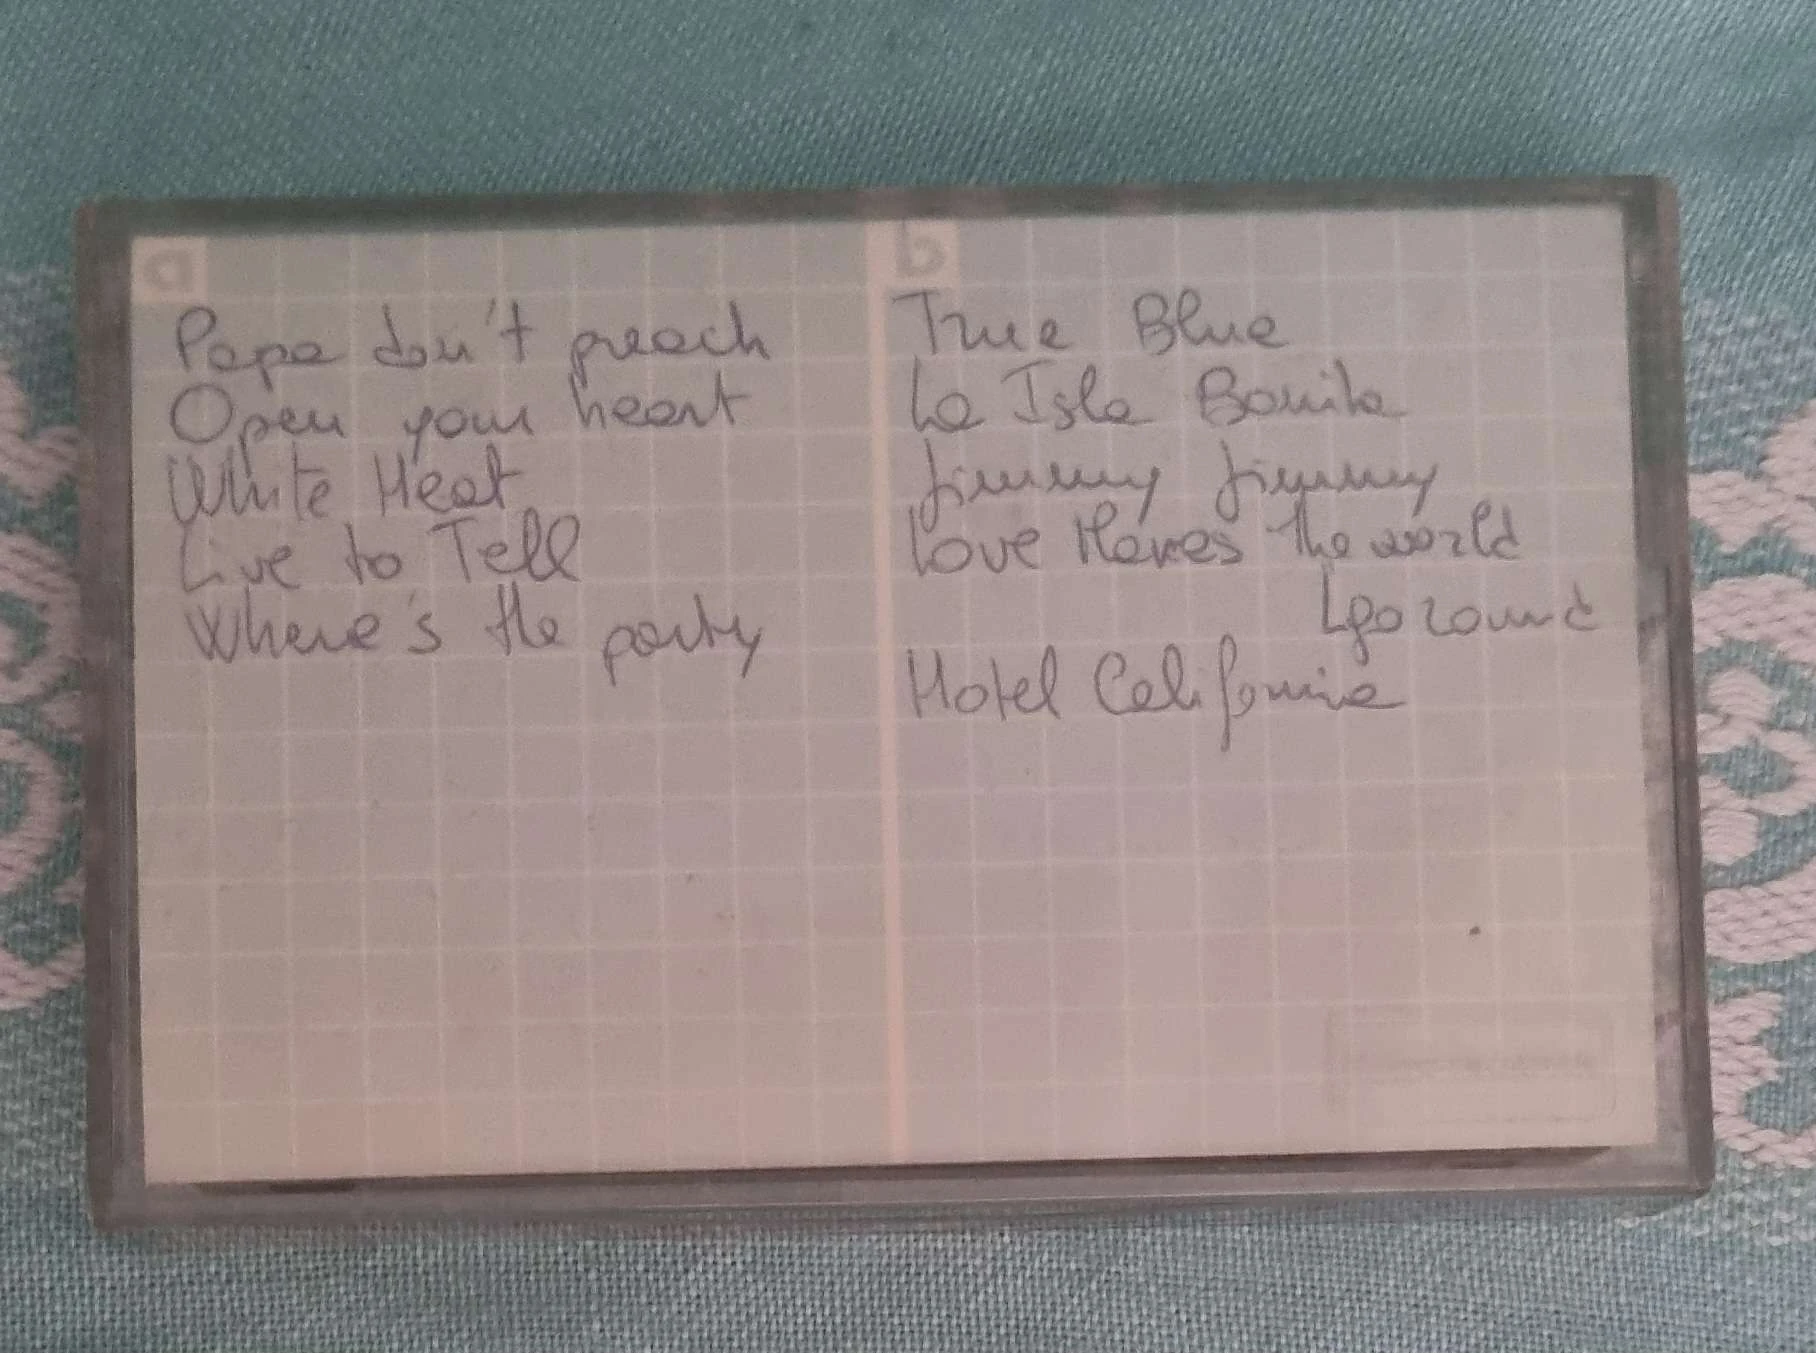 a
Papa don't preach
Open your heart
White Heat
Live to Tell
Where's the party
b
True Blue
La Isla Bonita
Jimmy Jimmy
Love Makes the world
go round
Hotel California